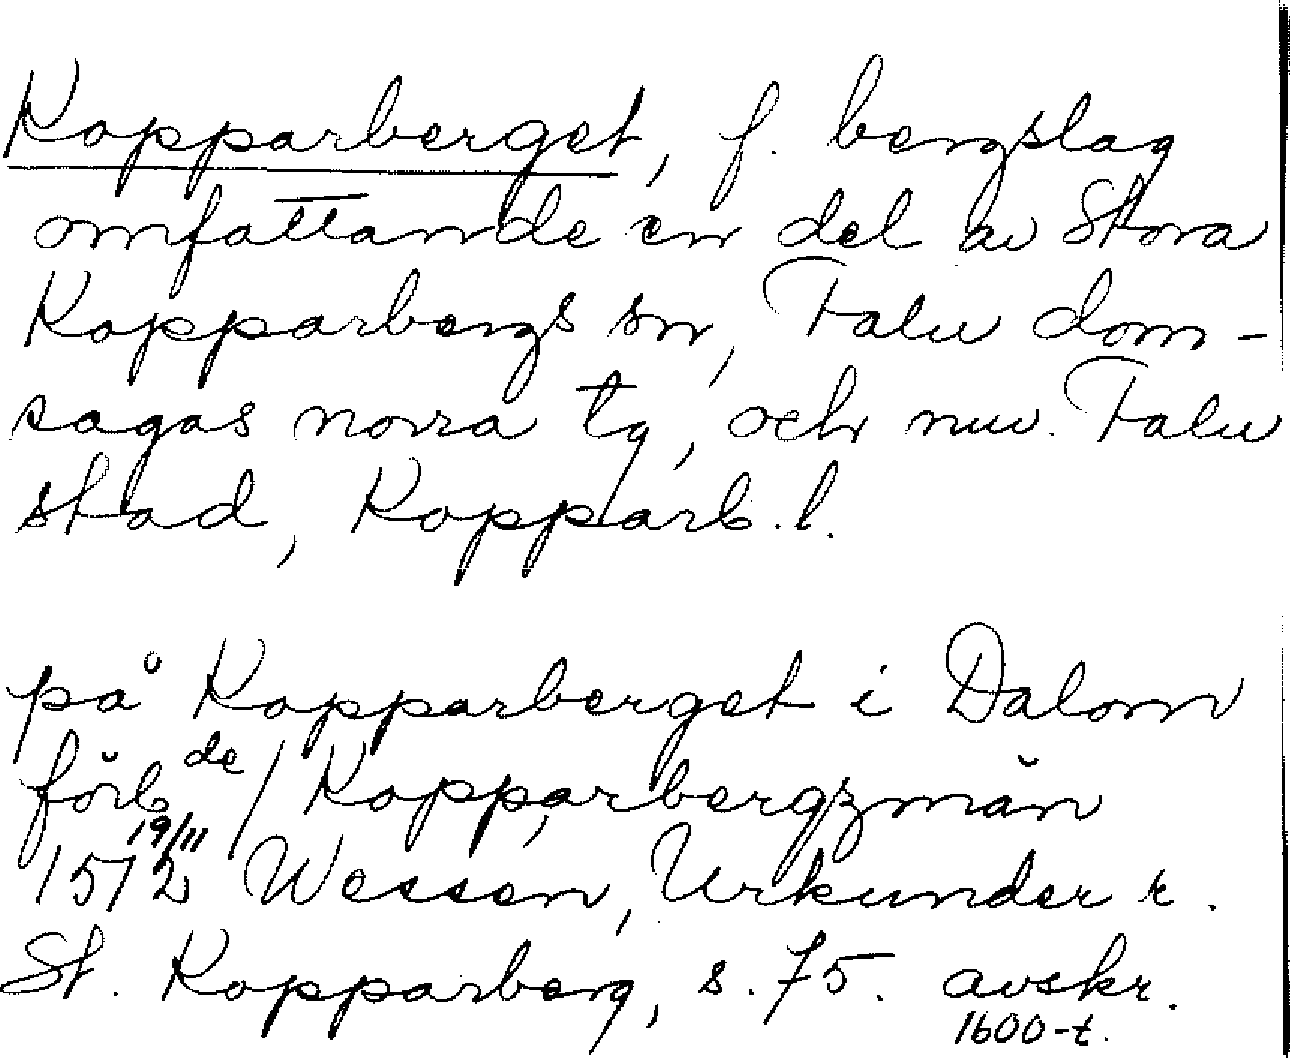 Kopparberget, f. bergslag
omfattande en del av Stora
Kopparbergs sn, Falu dom-
sagas norra tg, och nuv. Falu
stad, Kopparb. l.
på Kopparberget i Dalom
förb de / Kopparbergzmän
1572 19/11 Wessen, Urkunder r.
St. Kopparberg, s. 75. avskr.
1600-t.